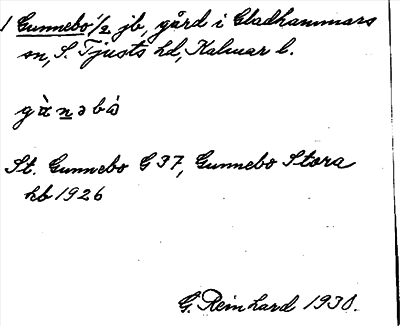 1 Gunnebo 1/2 jb, gård i Gladhammars
sn, S. Tjusts hd, Kalmar l.
St. Gunnebo G 37, Gunnebo Stora
kb 1926
G. Reinhard 1930.